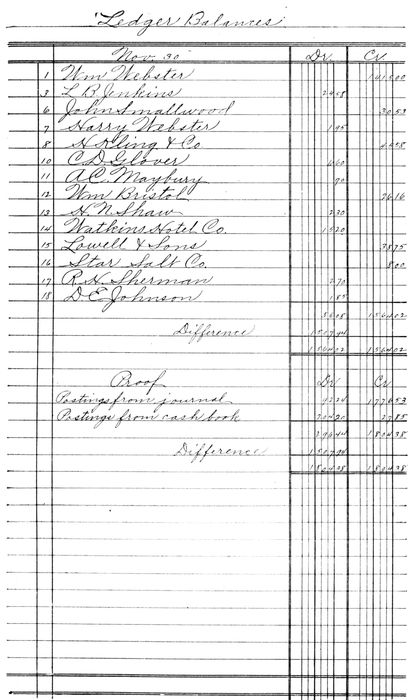 Ledger Balances
Nov. 30 Dr Cr
1 Wm Webster 1415 00
3 L B Jenkins 24 58
6 John Smallwood 30 53
7 Harry Webster 1 95
8 H. Kling & Co. 45 58
10 C D Glover 6 60
11 A.C. Maybury 90
12 Wm Bristol 26 16
13 H. N. Shaw 2 30
14 Watkins Hotel Co. 15 20
15 Lowell & Sons 38 75
16 Star Salt Co. 8 00
17 R. H. Sherman 2 70
18 D E Johnson 1 85
56 08 1564 02
Difference 1507 94
1564 02 1564 02
Proof Dr Cr
Postings from journal 92 24 1776 53
Postings from cash book 204 20 27 85
296 44 1804 38
Difference 1507 94
1804 38 1804 38